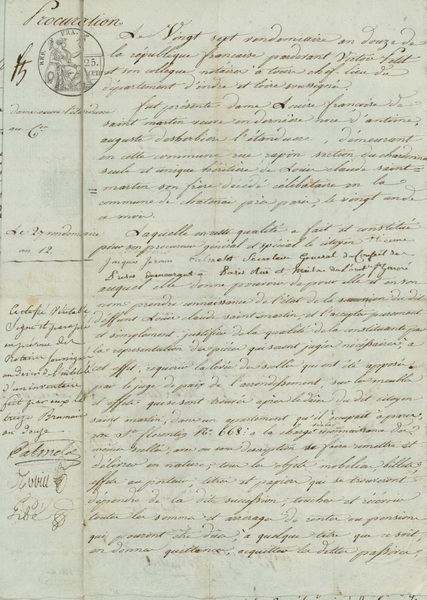 Procuration
RÉP. FRA.
25.
Le Vingt sept vendemiaire an douze de
la république française pardevant Victor Petit
et son collegue notaires a tours chef lieu du
département d'indre et loire soussignés
fut présente dame Louise françoise de
saint martin veuve en dernière noce d'antoine
auguste desherbiers l'étanduere, démeurant
en cette commune rue rapin section du chardonnet
seule et unique héritiere de Louis claude saint
martin son frère décédé célibataire en la
commune de chatenai près paris, le vingt
dame veuve l'étanduere
au Cen
Le 27 vendemiaire
an 12.
Laquelle en cette qualité a fait et constitué
pour son procureur général et spécial le citoyen
Jacques Secretaire General du Conseil de
demeurant à Paris rue
auquel elle donne pouvoir de pour elle et en son
nom prendre connaissance de l'état de la succession du dit
deffunt Louis claude saint martin, et l'accepter purement
et simplement, justifier de la qualité de la constituante par
la représentation des pièces qui seront jugées nécessaires; a
cet effet, requerir la levée des scellés qui ont été apposés
par le juge de paix de l'arrondissement, sur les meubles
et effets qui se sont trouvés après le décès du dit citoyen
saint martin, dans un appartement qu'il occupait a paris,
rue St. florentin No. 668; a la charge
mêmes scellés, ou sans description se faire remettre et
délivrer en nature, tous les objets mobiliers, billets
effets au porteur, titres et papiers qui se trouveront
dépendre de la dite succession, toucher et recevoir
toutes les sommes et arrerages de rentes ou pensions
qui pourront être dus, a quelque titre que ce soit,
en donner quittances, acquitter les dettes passives,
Certifié Véritable
Signé et paraphé
en présence des
Notaires soussignés
au desir de l'intitulé
d'un inventaire
fait par eux le
treize Brumaire
an douze